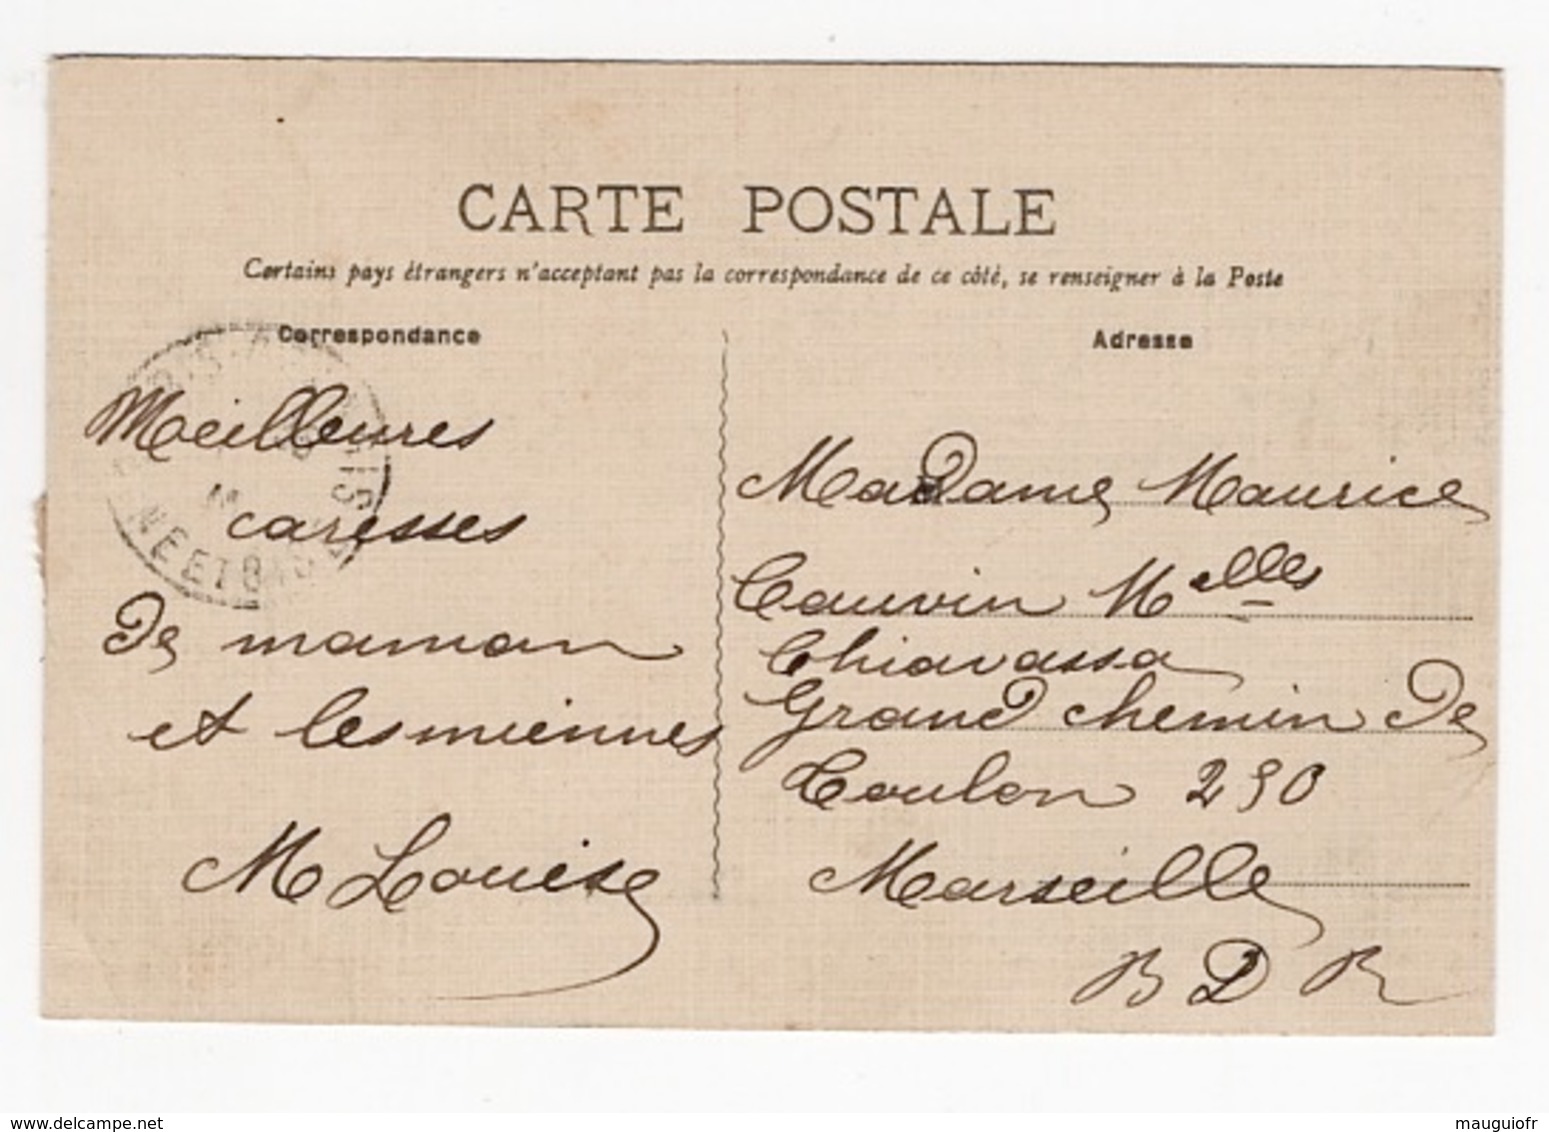 CARTE POSTALE
Certains pays étrangers n'acceptant pas la correspondance de ce côté, se renseigner à la Poste
Correspondance
Adresse
Meilleures
caresses
De maman
et les miennes
M Louise
Madame Maurice
Cauvin Melles
Chiavassa
Grand chemin De
Toulon 290
Marseille
B D R
NE ET OISE
www.delcampe.net
mauguiofr